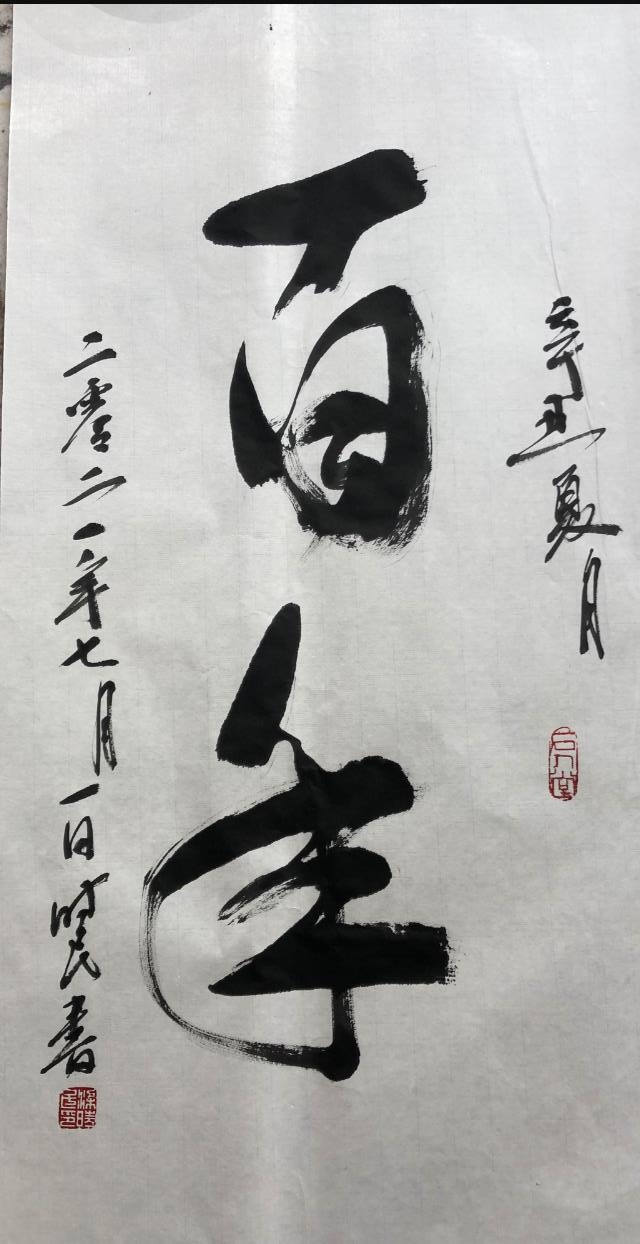 辛丑夏月
百年
二零二一年七月一日时民书